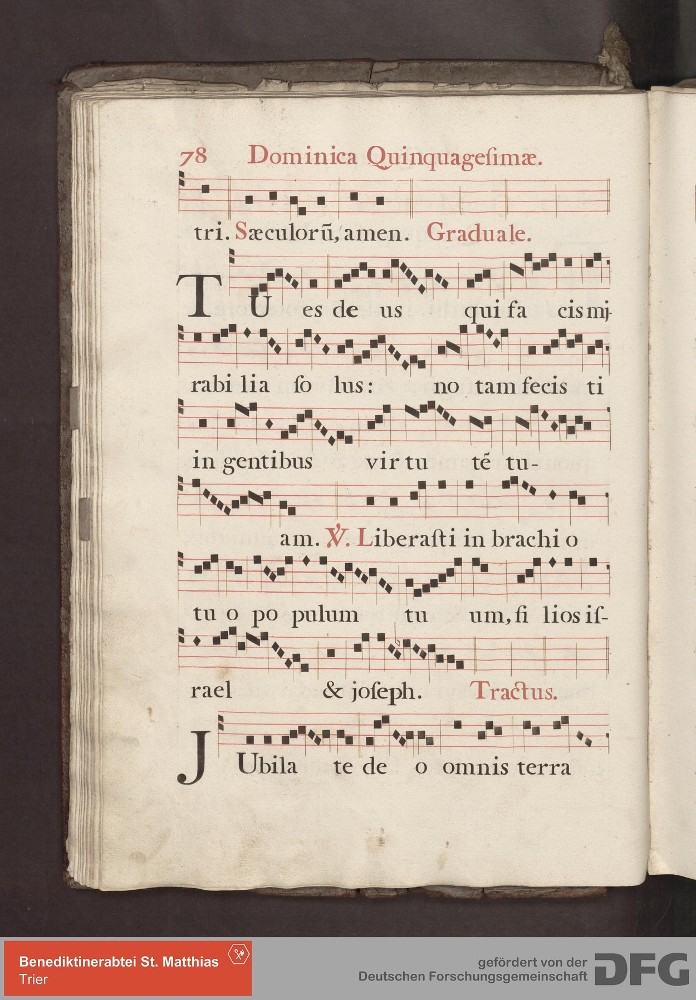 78 Dominica Quinquageſimæ.
tri. Sæculorũ, amen. Graduale.
TU es de us qui fa cis mj-
rabi lia ſo lus: no tam fecis ti
in gentibus vir tu tē tu-
am. ℣. Liberaſti in brachi o
tu o po pulum tu um, fi lios iſ-
rael & joſeph. Tractus.
JUbila te de o omnis terra
Benediktinerabtei St. Matthias
Trier
gefördert von der
Deutschen Forschungsgemeinschaft
DFG